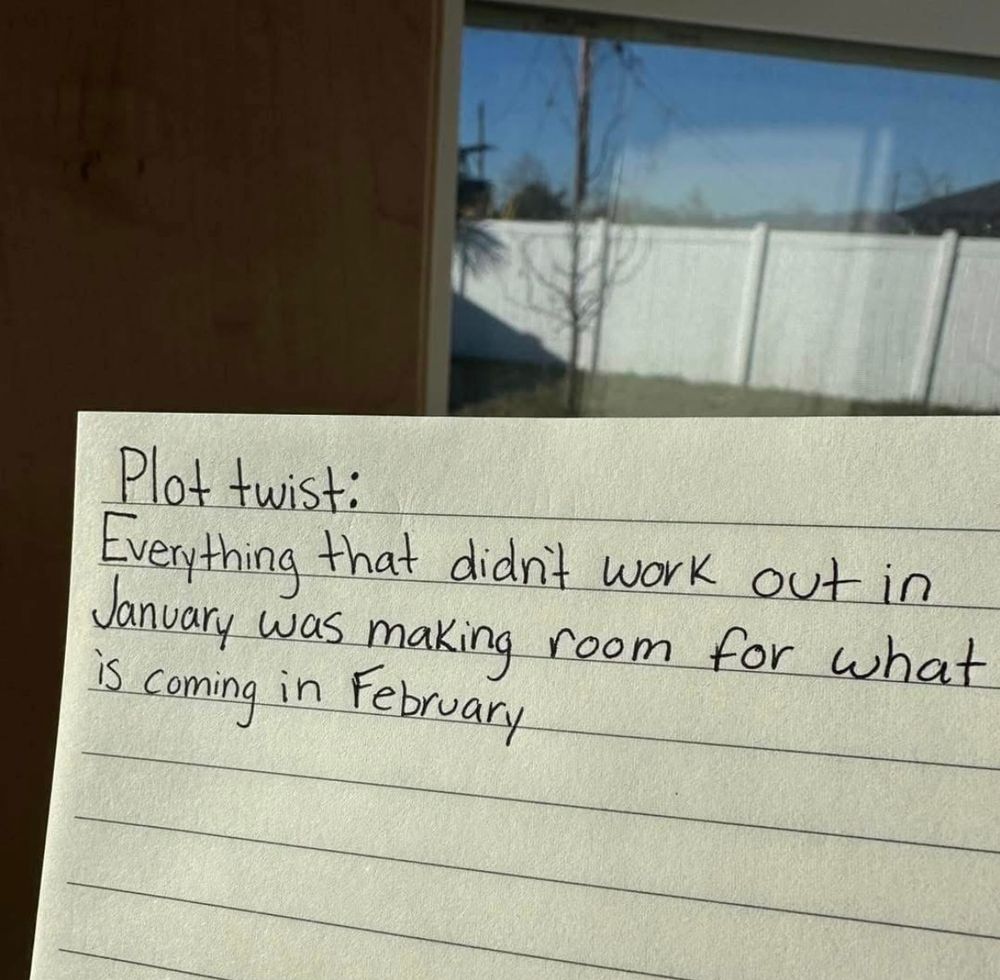 Plot twist:
Everything that didn't work out in
January was making room for what
is coming in February